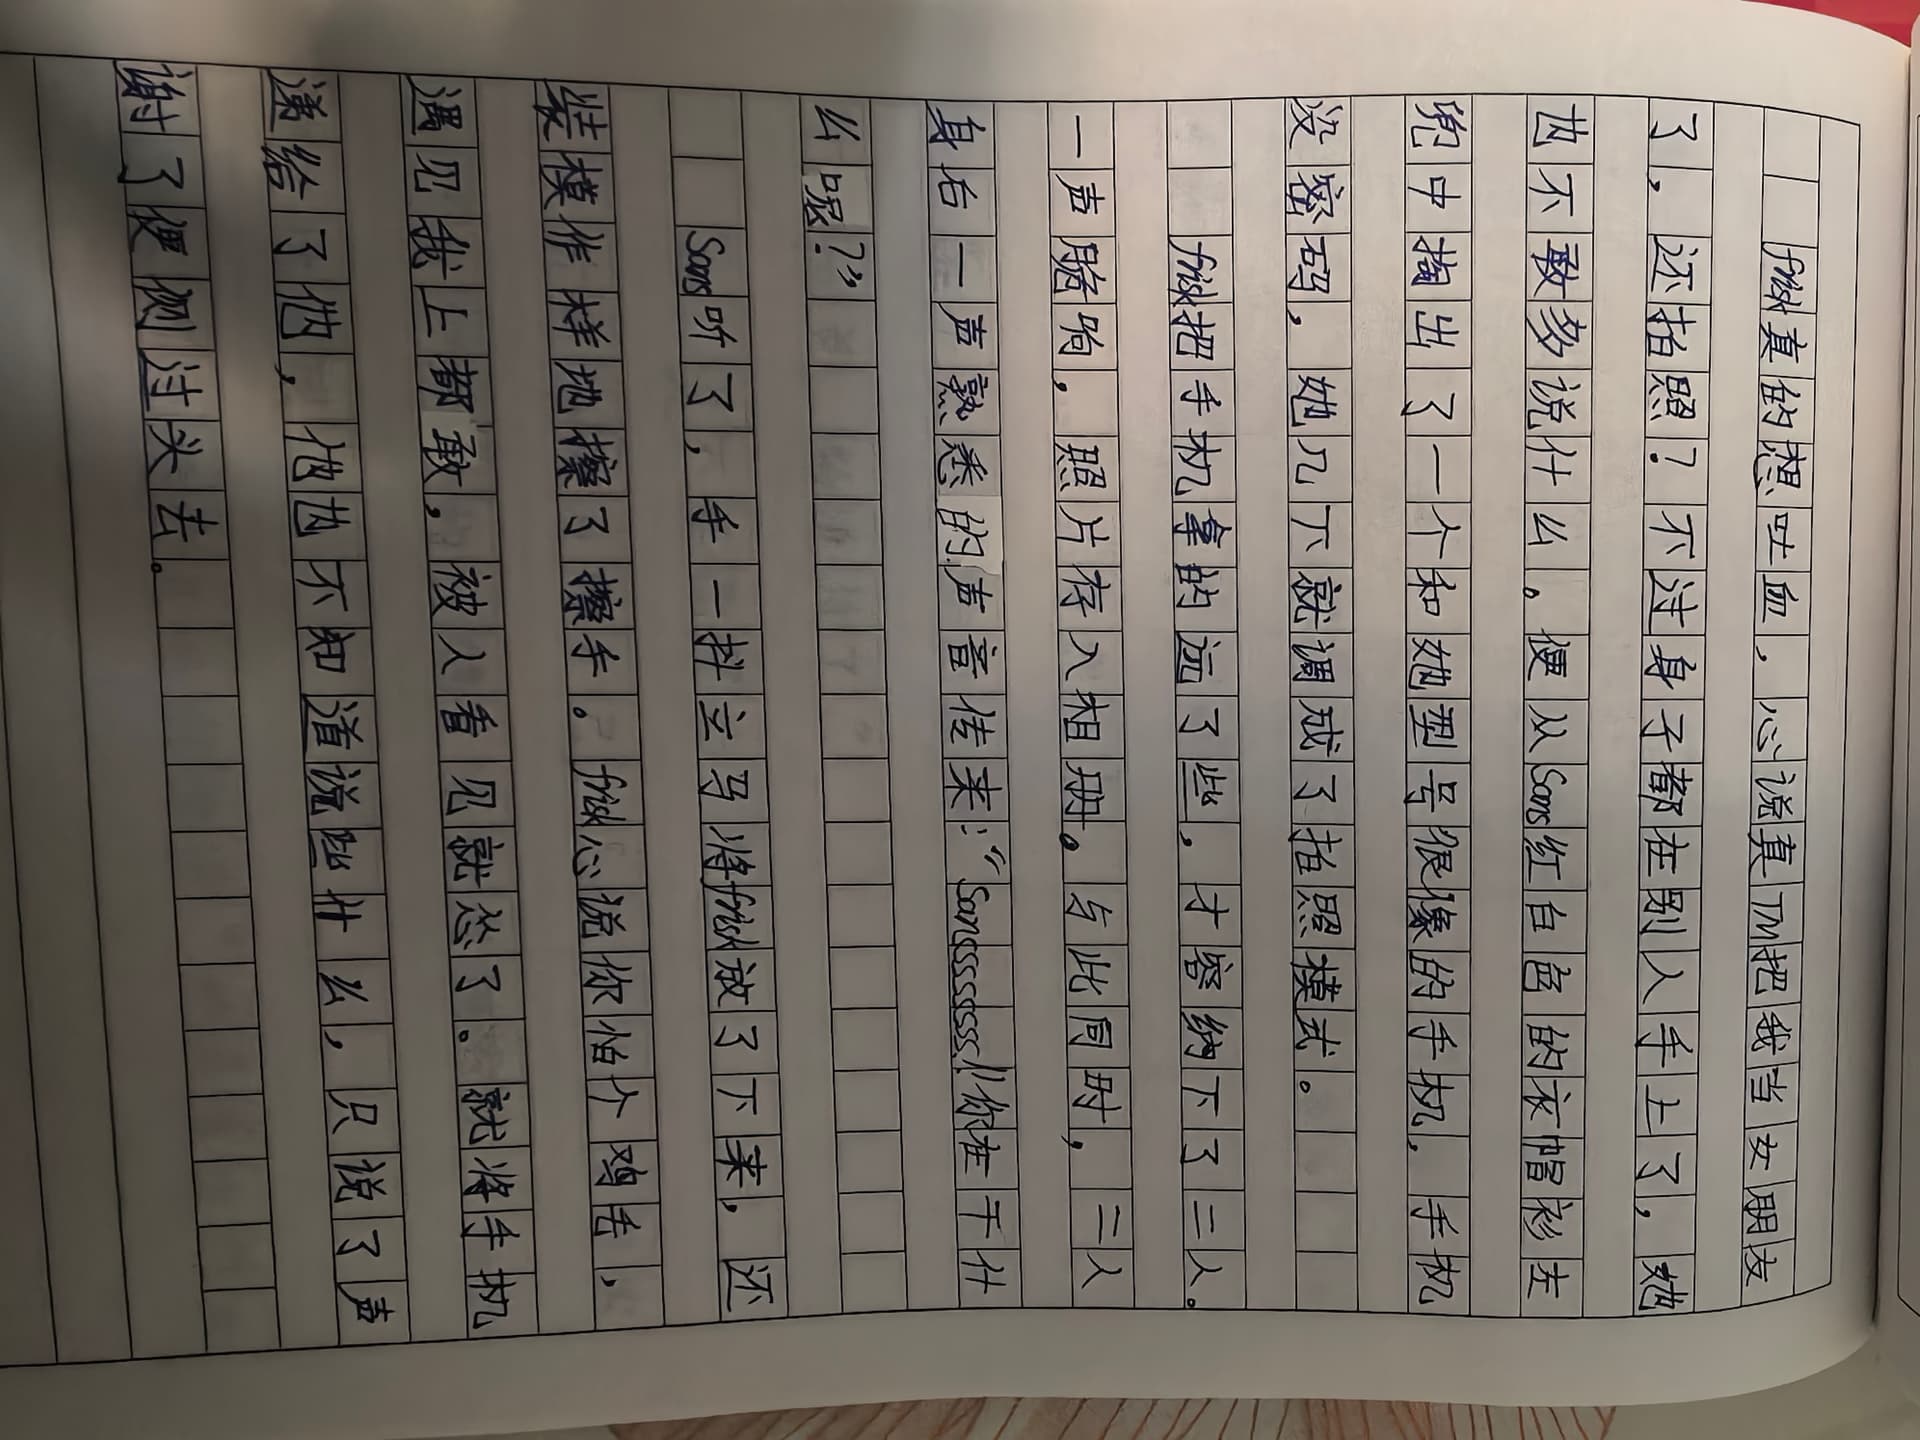 frisk真的想吐血，心说真TM把我当女朋友
了，还拍照？不过身子都在别人手上了，她
也不敢多说什么。便从Sans红白色的衣帽衫左
兜中掏出了一个和她型号很像的手机，手机
没密码，她几下就调成了拍照模式。
frisk把手机拿的远了些，才容纳下了二人。
一声脆响，照片存入相册。与此同时，二人
身后一声熟悉的声音传来：“Sansssssssss!!你在干什
么呢？”
Sans听了，手一抖立马将frisk放了下来，还
装模作样地擦了擦手。frisk心说你怕个鸡毛，
遇见我上都敢，被人看见就怂了。就将手机
递给了他，他也不知道说些什么，只说了声
谢了便侧过头去。